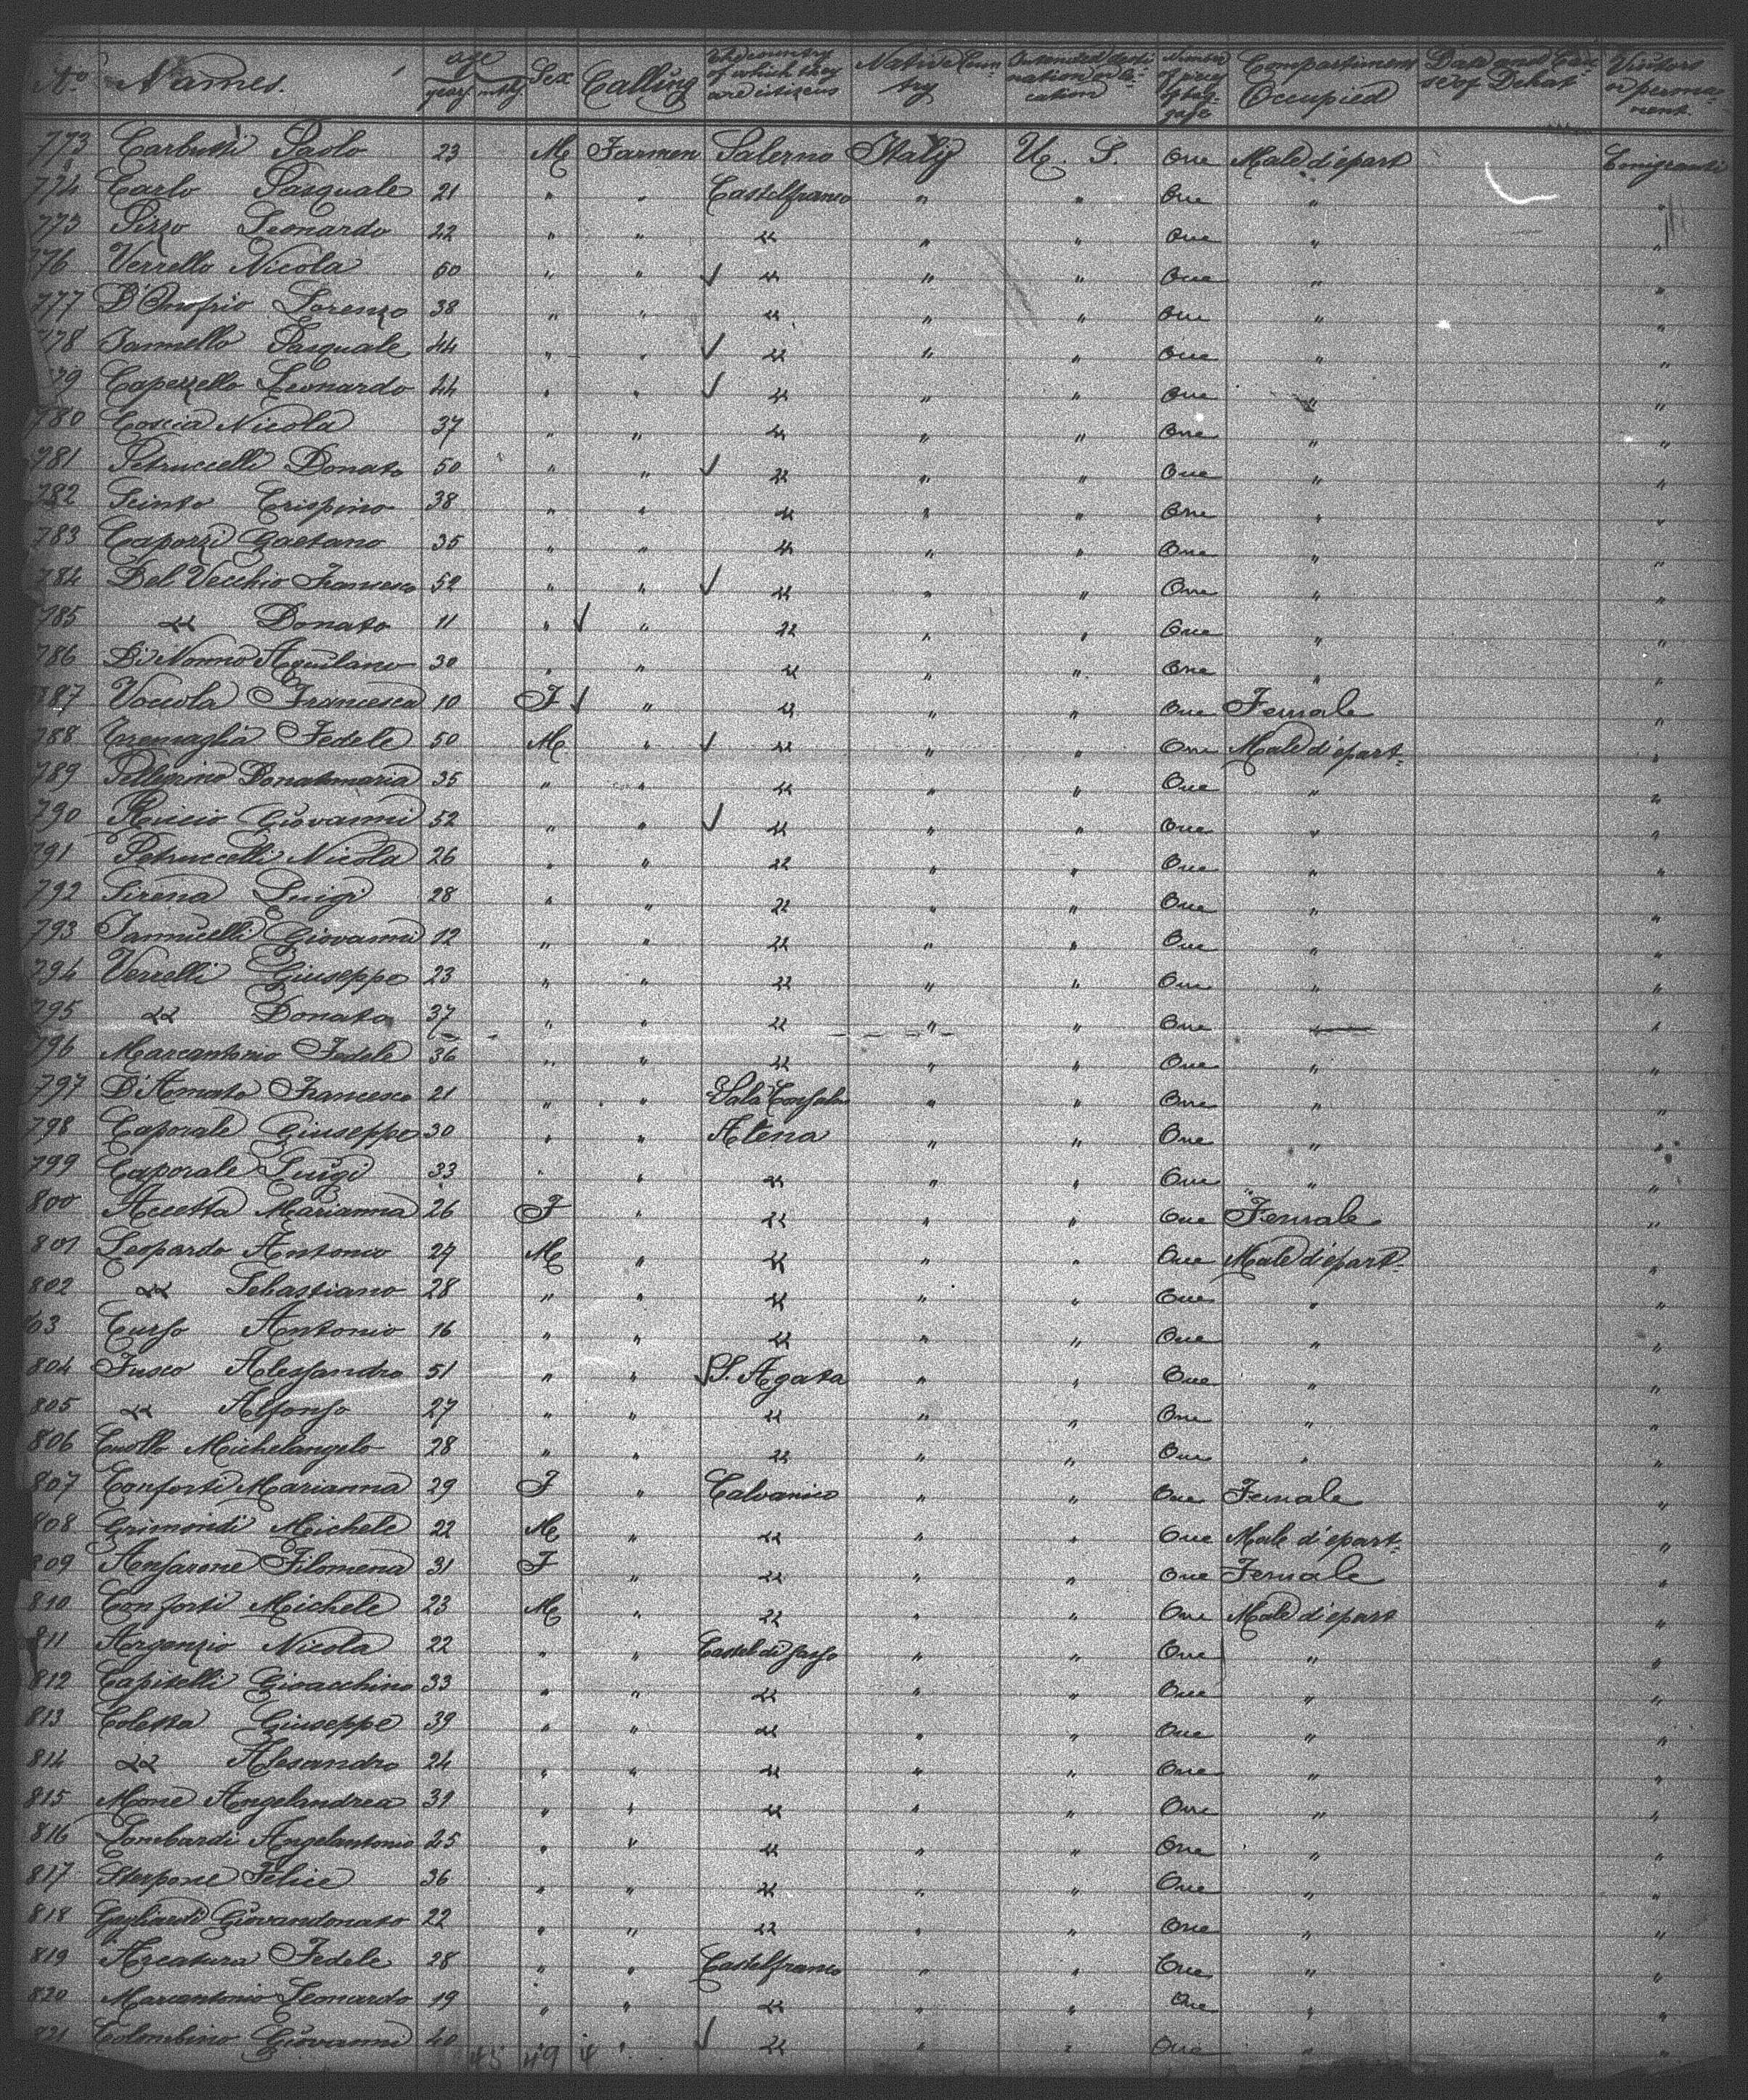 No Names. age years mths Sex Calling The country of which they are citizens Native Country Intended destination or location Number of pieces of baggage Compartment Occupied Date and Cause of Deheat Visitors or permanent.
773 Carbutti Paolo 23 M Farmer Salerno Italy U. S. One Male d'epart Emigranti
774 Carlo Pasquale 21 " " Castelfranco " " One " "
775 Pizzo Leonardo 22 " " " " " One " "
776 Verrello Nicola 60 " " " " " One " "
777 D'Onofrio Lorenzo 38 " " " " " One " "
778 Iannello Pasquale 44 " " " " " One " "
779 Capezzello Leonardo 44 " " " " " One " "
780 Coscia Nicola 37 " " " " " One " "
781 Petruccelli Donato 50 " " " " " One " "
782 Scinto Crispino 38 " " " " " One " "
783 Caporzi Gaetano 35 " " " " " One " "
784 Del Vecchio Francesco 52 " " " " " One " "
785 " Donato 11 " " " " " One " "
786 Di Nonno Aquilano 30 " " " " " One " "
787 Voccola Francesca 10 F " " " " One Female "
788 Tremaglia Fedele 50 M " " " " One Male d'epart- "
789 Pellegrino Donatomaria 35 " " " " " One " "
790 Riccio Giovanni 52 " " " " " One " "
791 Petruccelli Nicola 26 " " " " " One " "
792 Sirena Luigi 28 " " " " " One " "
793 Iannucelli Giovanni 12 " " " " " One " "
794 Verrelli Giuseppe 23 " " " " " One " "
795 " Donato 37 " " " " " One " "
796 Marcantonio Fedele 36 " " " " " One " "
797 D'Amato Francesco 21 " " Sala Consalina " " One " "
798 Caporale Giuseppe 30 " " Atena " " One " "
799 Caporale Luigi 33 " " " " " One " "
800 Accetta Marianna 26 F " " " " One Female "
801 Leopardo Antonio 27 M " " " " One Male d'epart- "
802 " Sebastiano 28 " " " " " One " "
803 Curso Antonio 16 " " " " " One " "
804 Fusco Alessandro 51 " " S. Agata " " One " "
805 " Alfonso 27 " " " " " One " "
806 Cuollo Michelangelo 28 " " " " " One " "
807 Conforti Marianna 29 F " Calvanico " " One Female "
808 Grimondi Michele 22 M " " " " One Male d'epart- "
809 Ansarone Filomena 31 F " " " " One Female "
810 Conforti Michele 23 M " " " " One Male d'epart "
811 Arganzio Nicola 22 " " Castel di Sasso " " One " "
812 Capitelli Gioacchino 33 " " " " " One " "
813 Coletta Giuseppe 39 " " " " " One " "
814 " Alesandro 24 " " " " " One " "
815 Mone Angelandrea 31 " " " " " One " "
816 Lombardi Angelantonio 25 " " " " " One " "
817 Sterpone Felice 36 " " " " " One " "
818 Gagliardi Giovandonato 22 " " " " " One " "
819 Arcatura Fedele 28 " " Castelfranco " " One " "
820 Marcantonio Leonardo 19 " " " " " One " "
821 Colombino Giovanni 40 " " " " " One " "
45 49 4